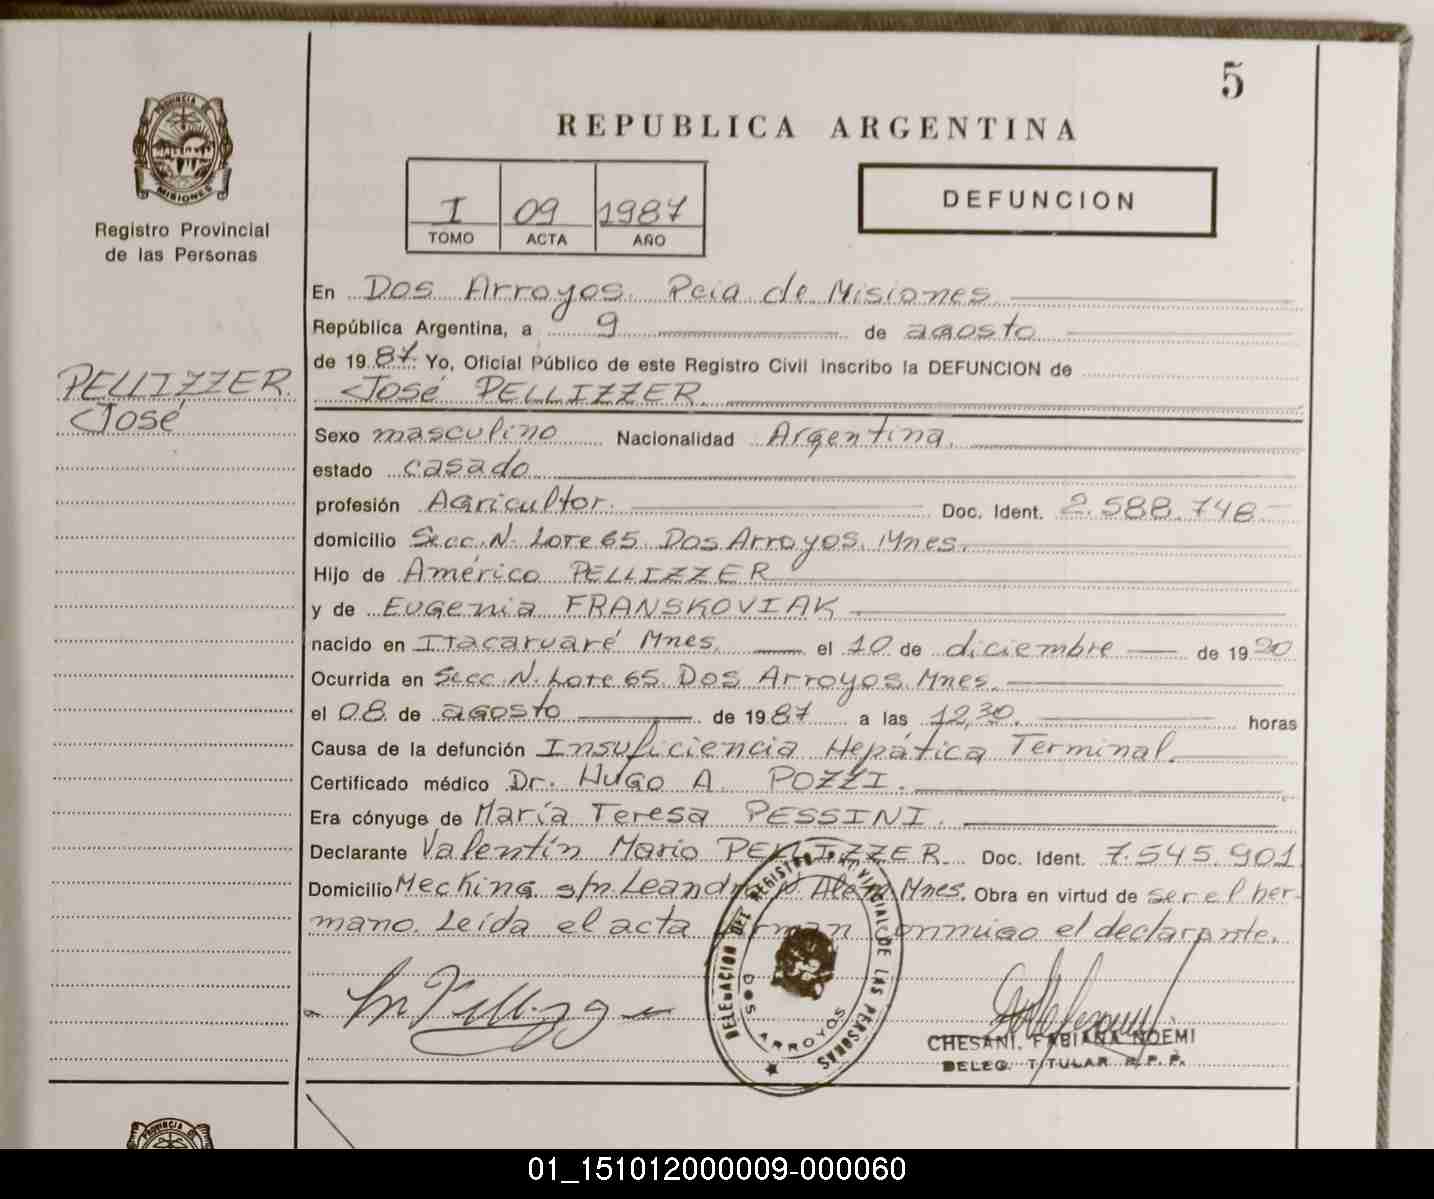 5
REPUBLICA ARGENTINA
PROVINCIA DE
MISIONES
Registro Provincial
de las Personas
I 09 1987
TOMO ACTA AÑO
DEFUNCION
PELLIZZER
José
En Dos Arroyos. Pcia de Misiones
República Argentina, a 9 de agosto
de 1987. Yo, Oficial Público de este Registro Civil inscribo la DEFUNCION de
José PELLIZZER.
Sexo masculino Nacionalidad Argentina.
estado casado
profesión Agricultor. Doc. Ident. 2.588.748
domicilio Secc. N. Lote 65. Dos Arroyos. Mnes.
Hijo de Américo PELLIZZER
y de Eugenia FRANSKOVIAK
nacido en Itacaruaré Mnes. el 10 de diciembre de 19
Ocurrida en Secc. N. Lote 65. Dos Arroyos. Mnes.
el 08 de agosto de 1987 a las 12,30. horas
Causa de la defunción Insuficiencia Hepática Terminal.
Certificado médico Dr. Hugo A. POZZI.
Era cónyuge de María Teresa PESSINI.
Declarante Valentín Mario PELLIZZER. Doc. Ident. 7.545.901
Domicilio Mecking s/n. Leandro N. Alem Mnes. Obra en virtud de ser el her-
mano. Leída el acta firman conmigo el declarante.
DELEGACION DEL REGISTRO PROVINCIAL DE LAS PERSONAS
DOS ARROYOS
CHESANI, FABIANA NOEMI
DELEG. TITULAR R.P.P.
PROVINCIA DE
01_151012000009-000060